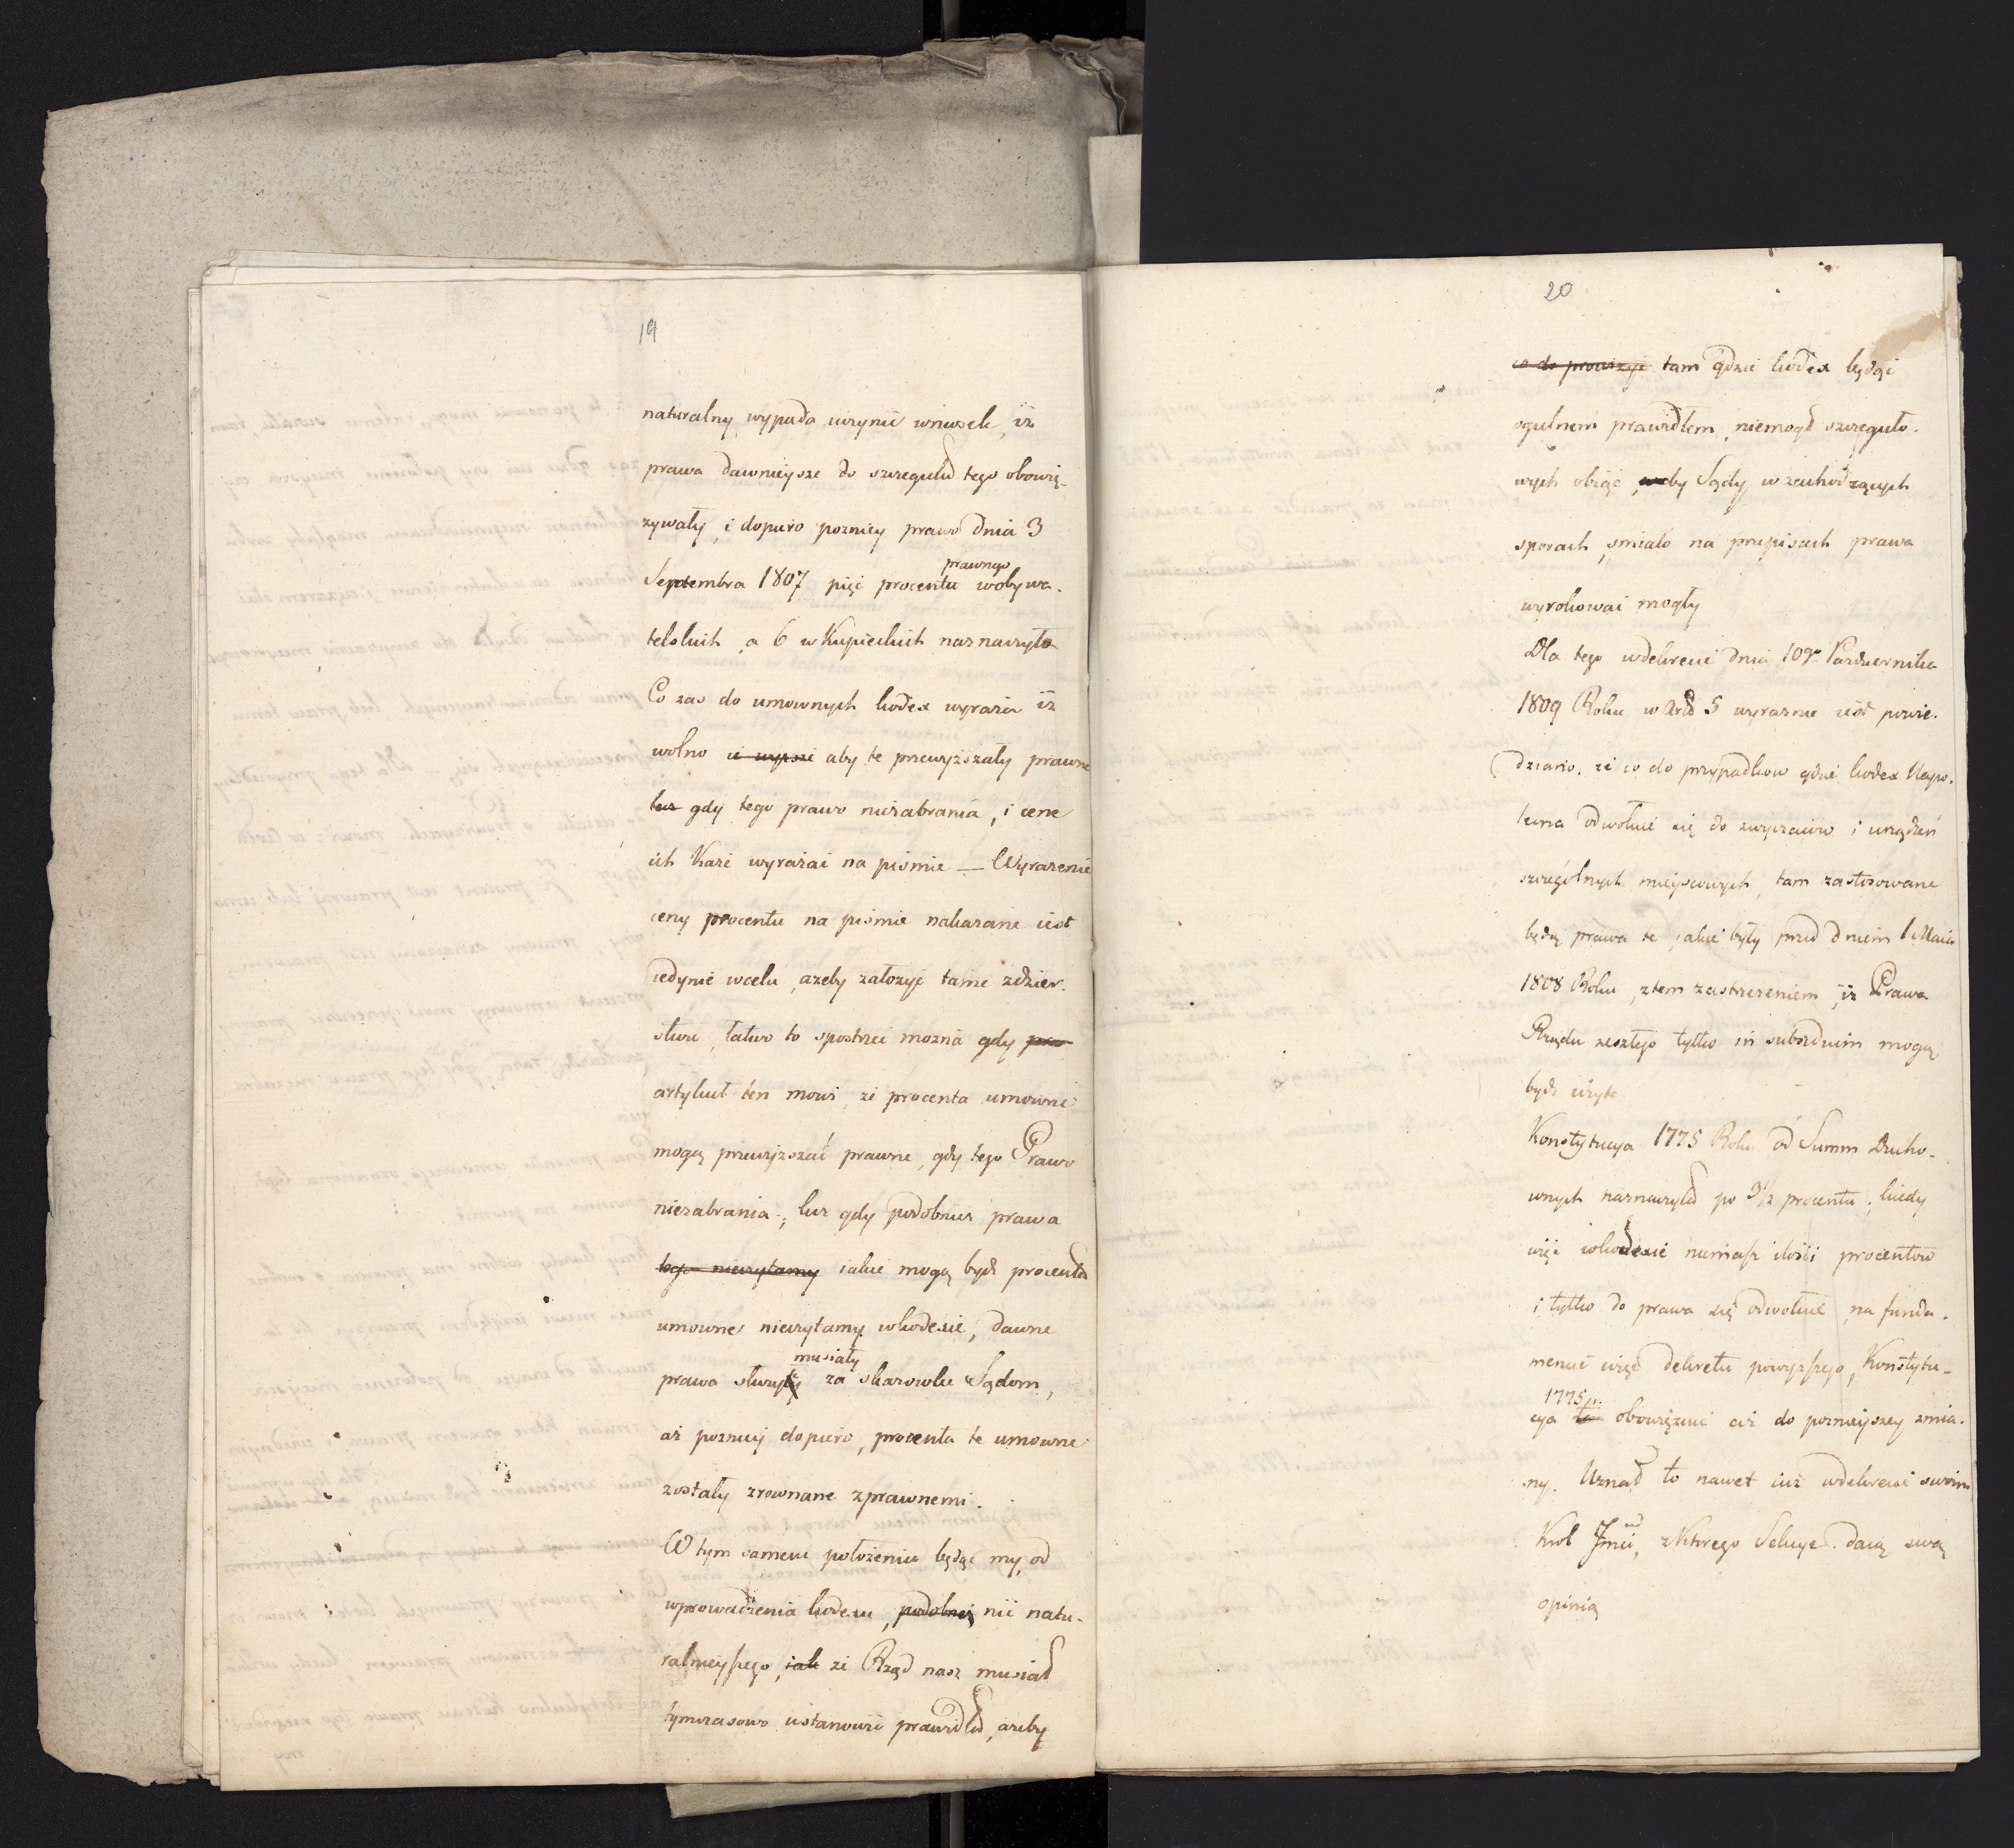 19
naturalny wypada uczynić wniosek, iż
prawa dawnieysze do szczegułu tego obowią-
zywały, i dopiero pozniey prawo dnia 3
prawnego
Septembra 1807 pięć procentu wobywa-
telskich, a 6 w Kupieckich naznaczyło
Co zas do umownych kodex wyraża iż
wolno aby te przewyższały prawne
gdy tego prawo niezabrania, i cene
ich Każe wyrażać na pismie — Wyrażenie
ceny procentu na pismie nakazane iest
iedynie wcelu, ażeby założyć tamę zdzier-
stwu, łatwo to spostrzec można gdy
artykuł ten mowi, że procenta umowne
mogą przewyższać prawne, gdy tego Prawo
niezabrania; lecz gdy podobnież prawa
tego nieczytamy iakie mogą bydź procenta
umowne nieczytamy wkodexie, dawne
musiały
prawa służyły za skazowkę Sądom,
aż pozniey dopiero, procenta te umowne
zostały zrownane zprawnemi.
W tym samem położeniu będąc my, od
wprowadzenia kodexu, podobnie nic natu-
ralnieyszego, iak że Rząd nasz musiał
tymczasowo ustanowić prawidło, ażeby
20
co do prowizyi tam gdzie kodex będąc
ogulnem prawidłem, niemogł szczeguło-
wych obiąć, Sądy w zachodzących
sporach, smiało na przepisach prawa
wyrokować mogły
Dla tego wdekrecie dnia 10go Pazdziernika
1809 Roku w Art 5 wyraznie iest powie-
dziano, że co do przypadkow gdzie kodex Napo-
leona odwołuie się do zwyczaiow i urządzeń
szczegolnych mieyscowych, tam zastosowane
będą prawa te, iakie były przed dniem 1 Maia
1808 Roku, ztem zastrzeżeniem, iż Prawa
Rządu zeszłego tylko in subsidium mogą
bydź użyte
Konstytucya 1775 Roku od Summ Ducho-
wnych naznaczyła po 3½ procentu, kiedy
więc wkodexie niemasz ilości procentow
i tylko do prawa się odwołuie, na funda-
mencie więc dekretu powyższego, Konstytu-
1775 r.
cya ta obowiązuie aż do poznieyszey zmia-
ny. Uznał to nawet iuż wdekrecie swoim
Krol Jmci, zKtorego Sekcye daią swą
opinią